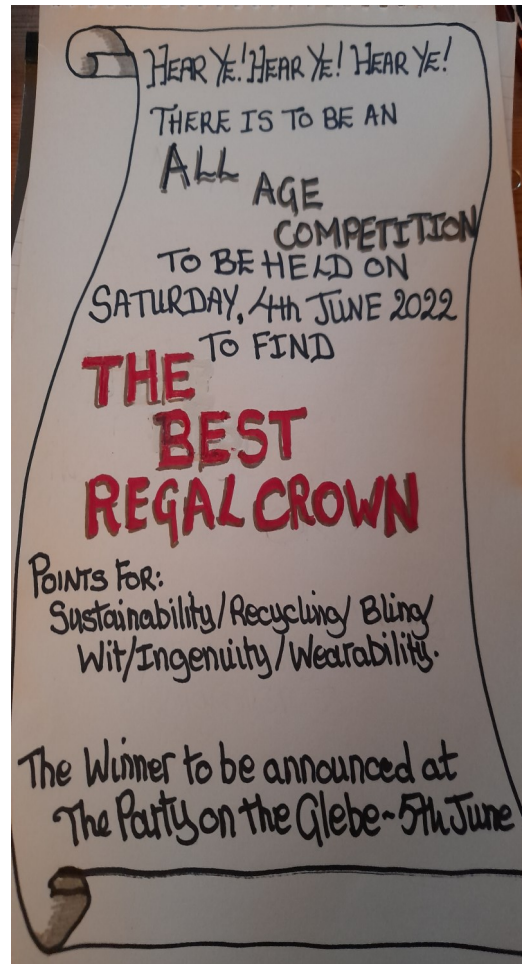 HEAR YE! HEAR YE! HEAR YE!
THERE IS TO BE AN
ALL
AGE
COMPETITION
TO BE HELD ON
SATURDAY, 4th JUNE 2022
TO FIND
THE
BEST
REGAL CROWN
POINTS FOR:
Sustainability/Recycling/Bling/
Wit/Ingenuity/Wearability.
The Winner to be announced at
The Party on the Glebe~5th June